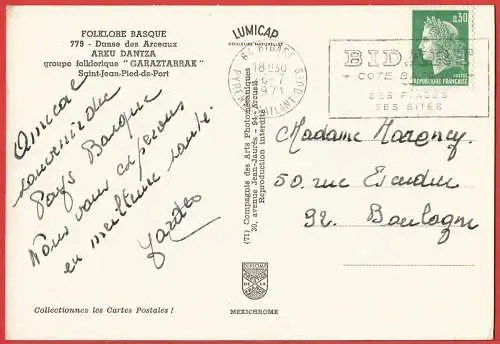 FOLKLORE BASQUE
779 - Danse des Arceaux
ARKU DANTZA
groupe folklorique "GARAZTARRAK"
Saint-Jean-Pied-de-Port
Amical
souvenir du
Pays Basque
Nous vous espérons
en meilleure santé.
Collectionnes les Cartes Postales !
LUMICAP
COULEURS NATURELLES
(71) Compagnie des Arts Photomécaniques
30, avenue Jean-Jaurès - 94-Arcueil
Reproduction interdite
MEXICHROME
64 BIDART
18H30
1971
PYR
ATLANTIQUES
BID
COTE B
SES PLAGES
SES SITES
0,30
REPUBLIQUE FRANÇAISE
POSTES
Madame Marency
50, rue Escudier
92. Boulogne